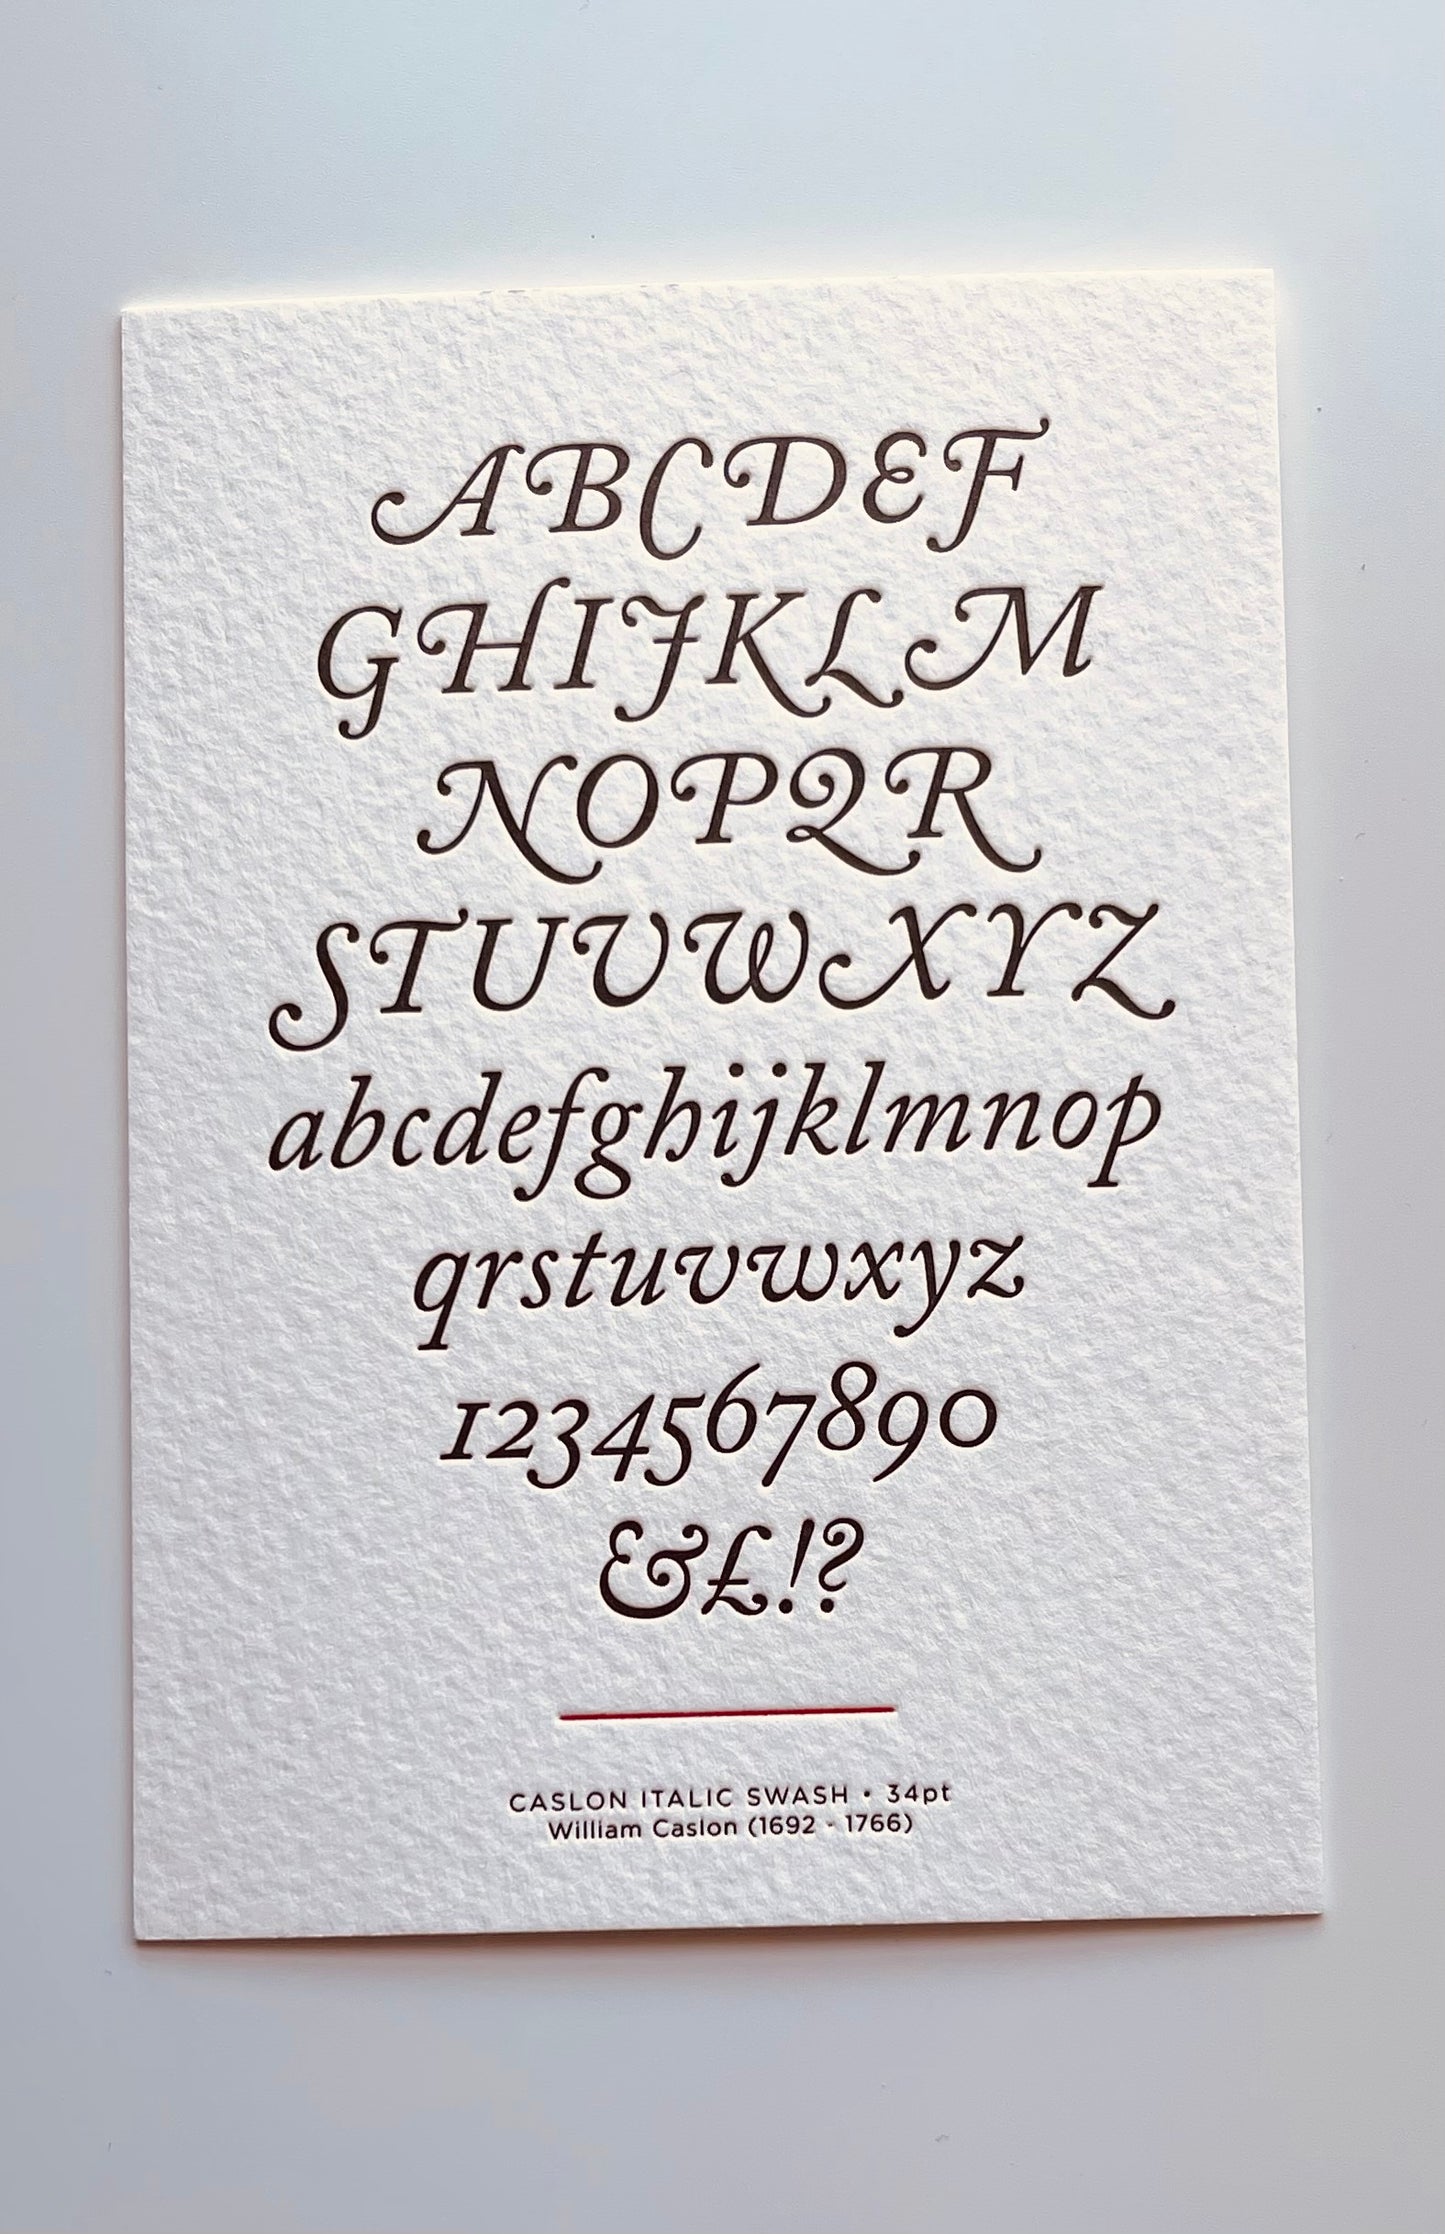 ABCDEF
GHIJKLM
NOPQR
STUVWXYZ
abcdefghijklmnop
qrstuvwxyz
1234567890
&£!?
CASLON ITALIC SWASH • 34pt
William Caslon (1692 - 1766)